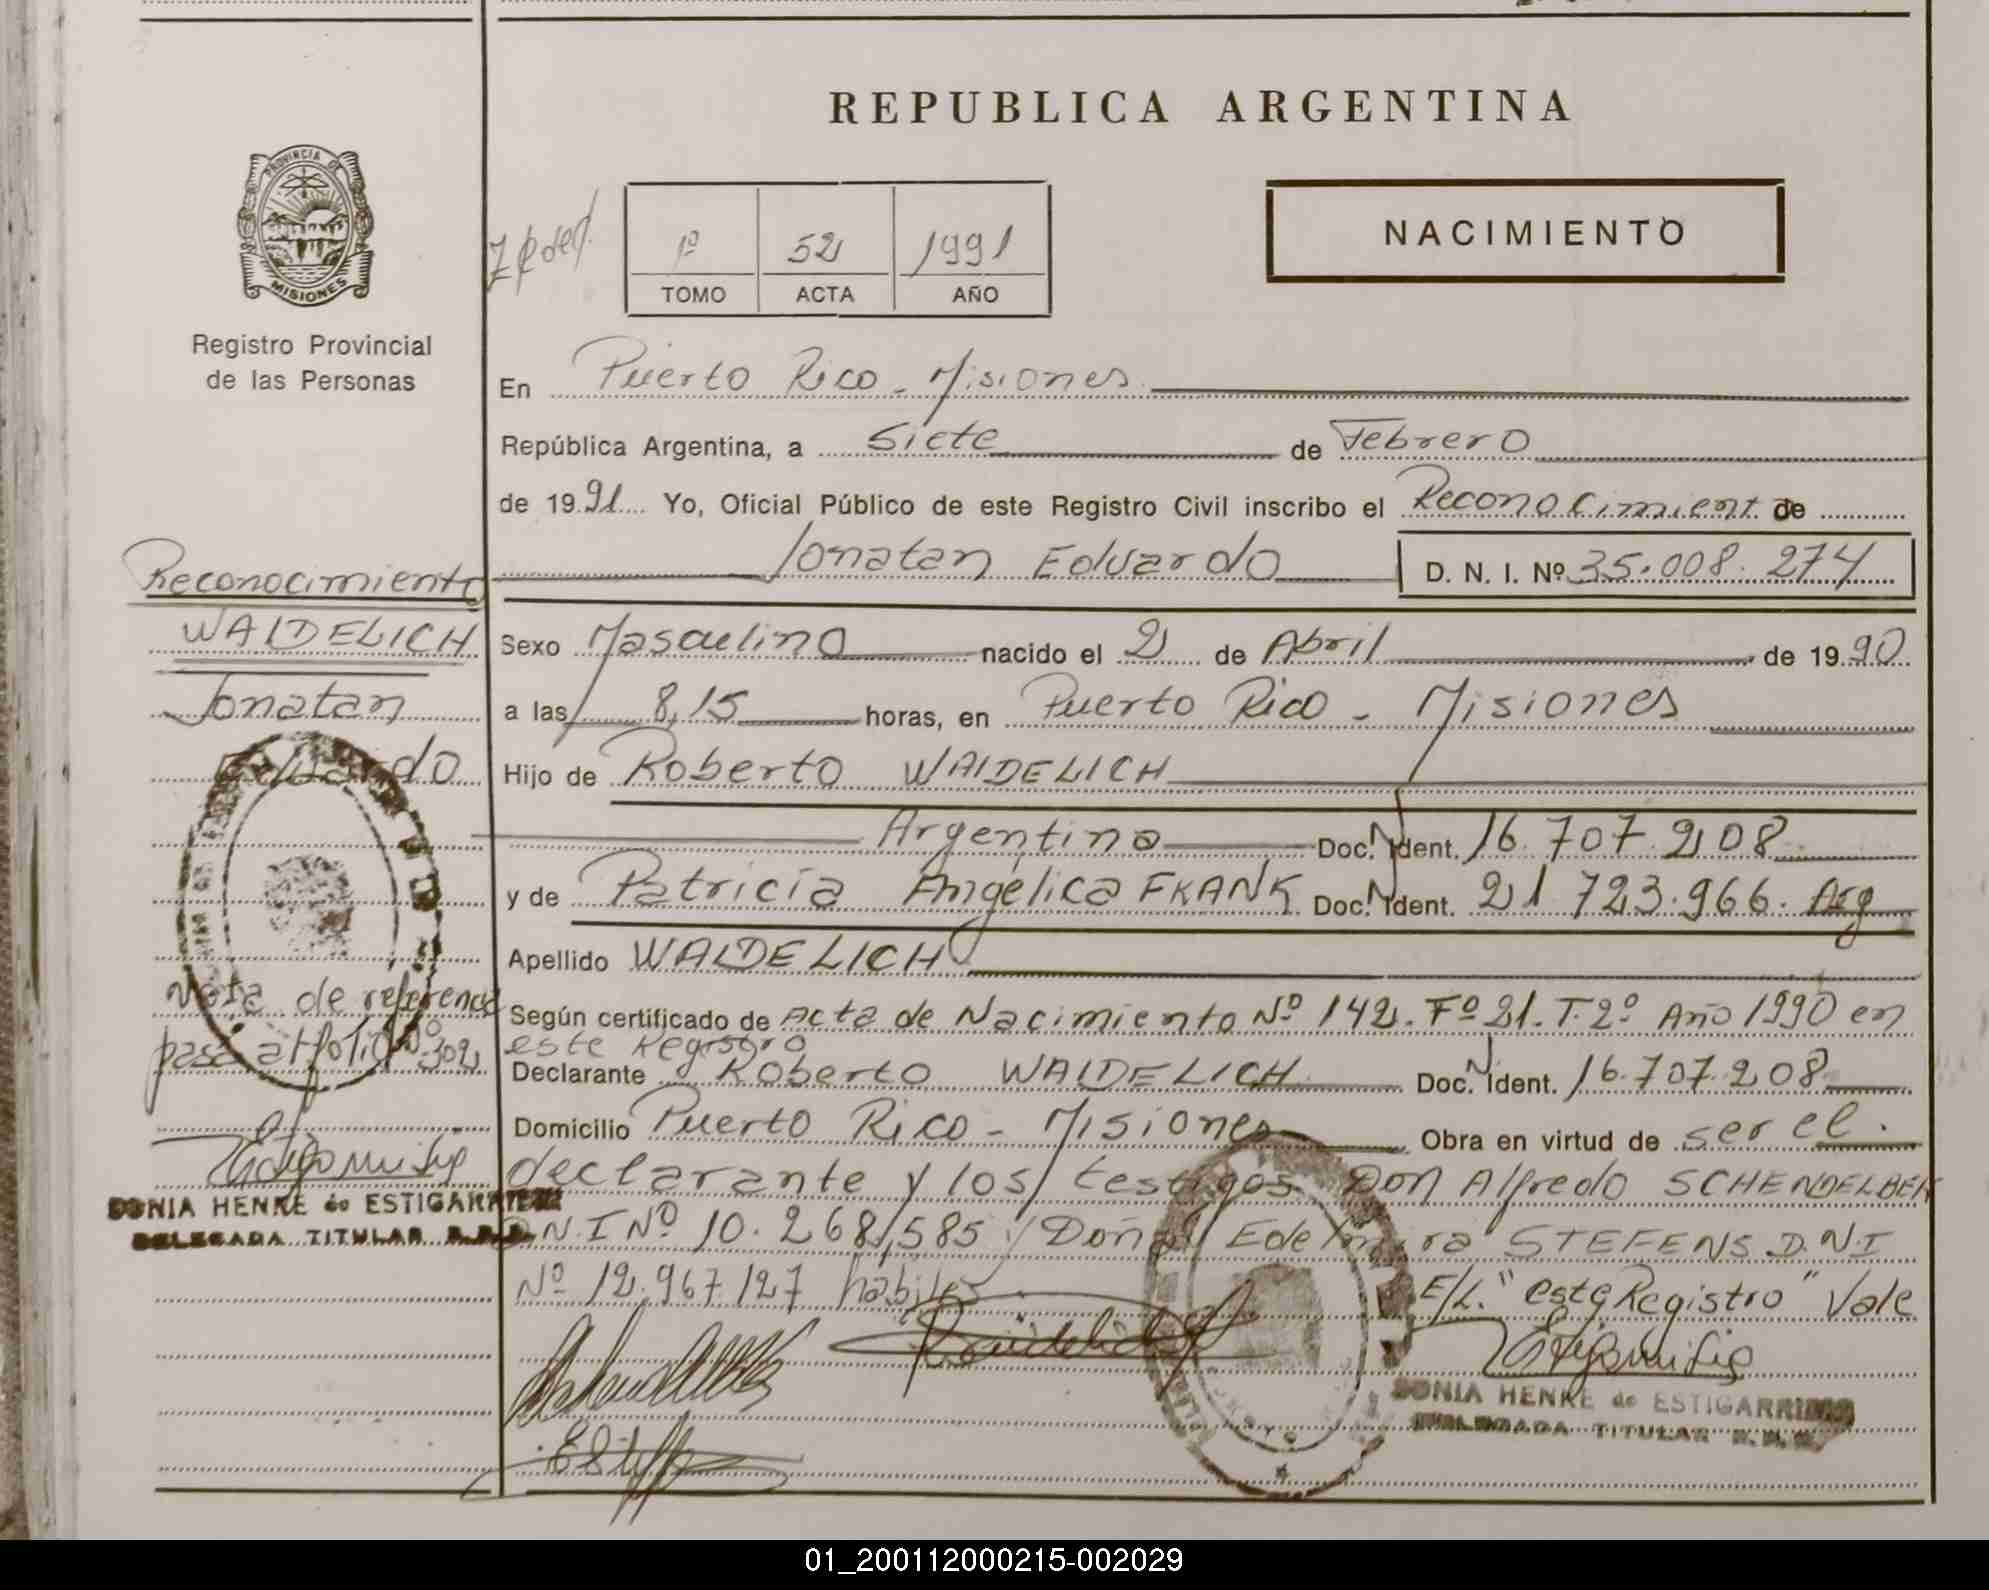 REPUBLICA ARGENTINA
PROVINCIA DE
MISIONES
Registro Provincial
de las Personas
1º 52 1991
TOMO ACTA AÑO
NACIMIENTO
En Puerto Rico - Misiones
República Argentina, a siete de Febrero
de 1991 Yo, Oficial Público de este Registro Civil inscribo el Reconocimient de
Jonatan Eduardo D. N. I. Nº 35.008.274
Reconocimiento
WALDELICH
Jonatan
Eduardo
Nota de referencia
pasa al folio Nº 302
SONIA HENKE de ESTIGARRIBIA
DELEGADA TITULAR R.P.P.
Sexo Masculino nacido el 2 de Abril de 1990
a las 8,15 horas, en Puerto Rico - Misiones
Hijo de Roberto WALDELICH
Argentina Doc. N Ident. 16.707.208
y de Patricia Angélica FRANK Doc. N Ident. 21.723.966. Arg
Apellido WALDELICH
Según certificado de Acta de Nacimiento Nº 142. Fº 21. T. 2º Año 1990 en
este Registro
Declarante Roberto WALDELICH Doc. N Ident. 16.707.208
Domicilio Puerto Rico - Misiones Obra en virtud de ser el
declarante y los testigos Don Alfredo SCHENDELBEK
D.N.I Nº 10.268.585 y Doña Edelmira STEFENS D.N.I
Nº 12.967.127 hábiles
E/L. "este Registro" Vale
SONIA HENKE de ESTIGARRIBIA
DELEGADA TITULAR R.P.P.
01_200112000215-002029